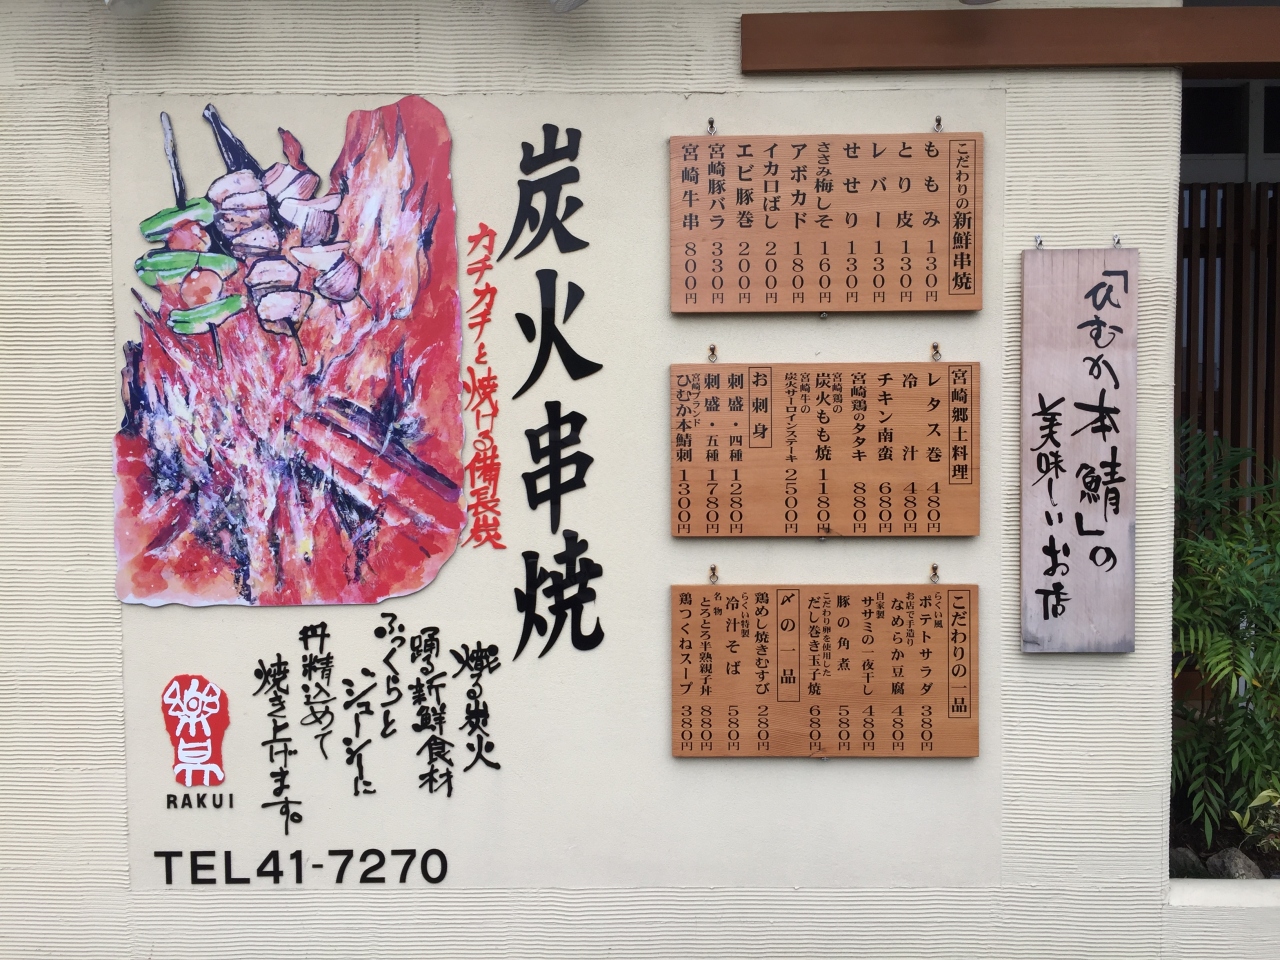 炭火串焼
カチカチと焼ける備長炭
燃る炭火
踊る新鮮食材
ふっくらと
ジューシーに
丹精込めて
焼き上げます。
RAKUI
TEL41-7270
こだわりの新鮮串焼
ももみ 130円
とり皮 130円
レバー 130円
せせり 130円
ささみ梅しそ 160円
アボカド 180円
イカ口ばし 200円
エビ豚巻 200円
宮崎豚バラ 330円
宮崎牛串 800円
宮崎郷土料理
レタス巻 480円
冷汁 480円
チキン南蛮 680円
宮崎鶏のタタキ 880円
宮崎鶏の
炭火もも焼 1180円
宮崎牛の
炭火サーロインステーキ 2500円
お刺身
刺盛・四種 1280円
刺盛・五種 1780円
宮崎ブランド
ひむか本鯖刺 1300円
こだわりの一品
らくい風
ポテトサラダ 380円
お店で手造り
なめらか豆腐 480円
自家製
ササミの一夜干し 480円
豚の角煮 580円
こだわり卵を使用した
だし巻き玉子焼 680円
〆の一品
鶏めし焼きむすび 280円
らくい特製
冷汁そば 580円
名物
とろとろ半熟親子丼 880円
鶏つくねスープ 380円
「ひむか本鯖」の
美味しいお店